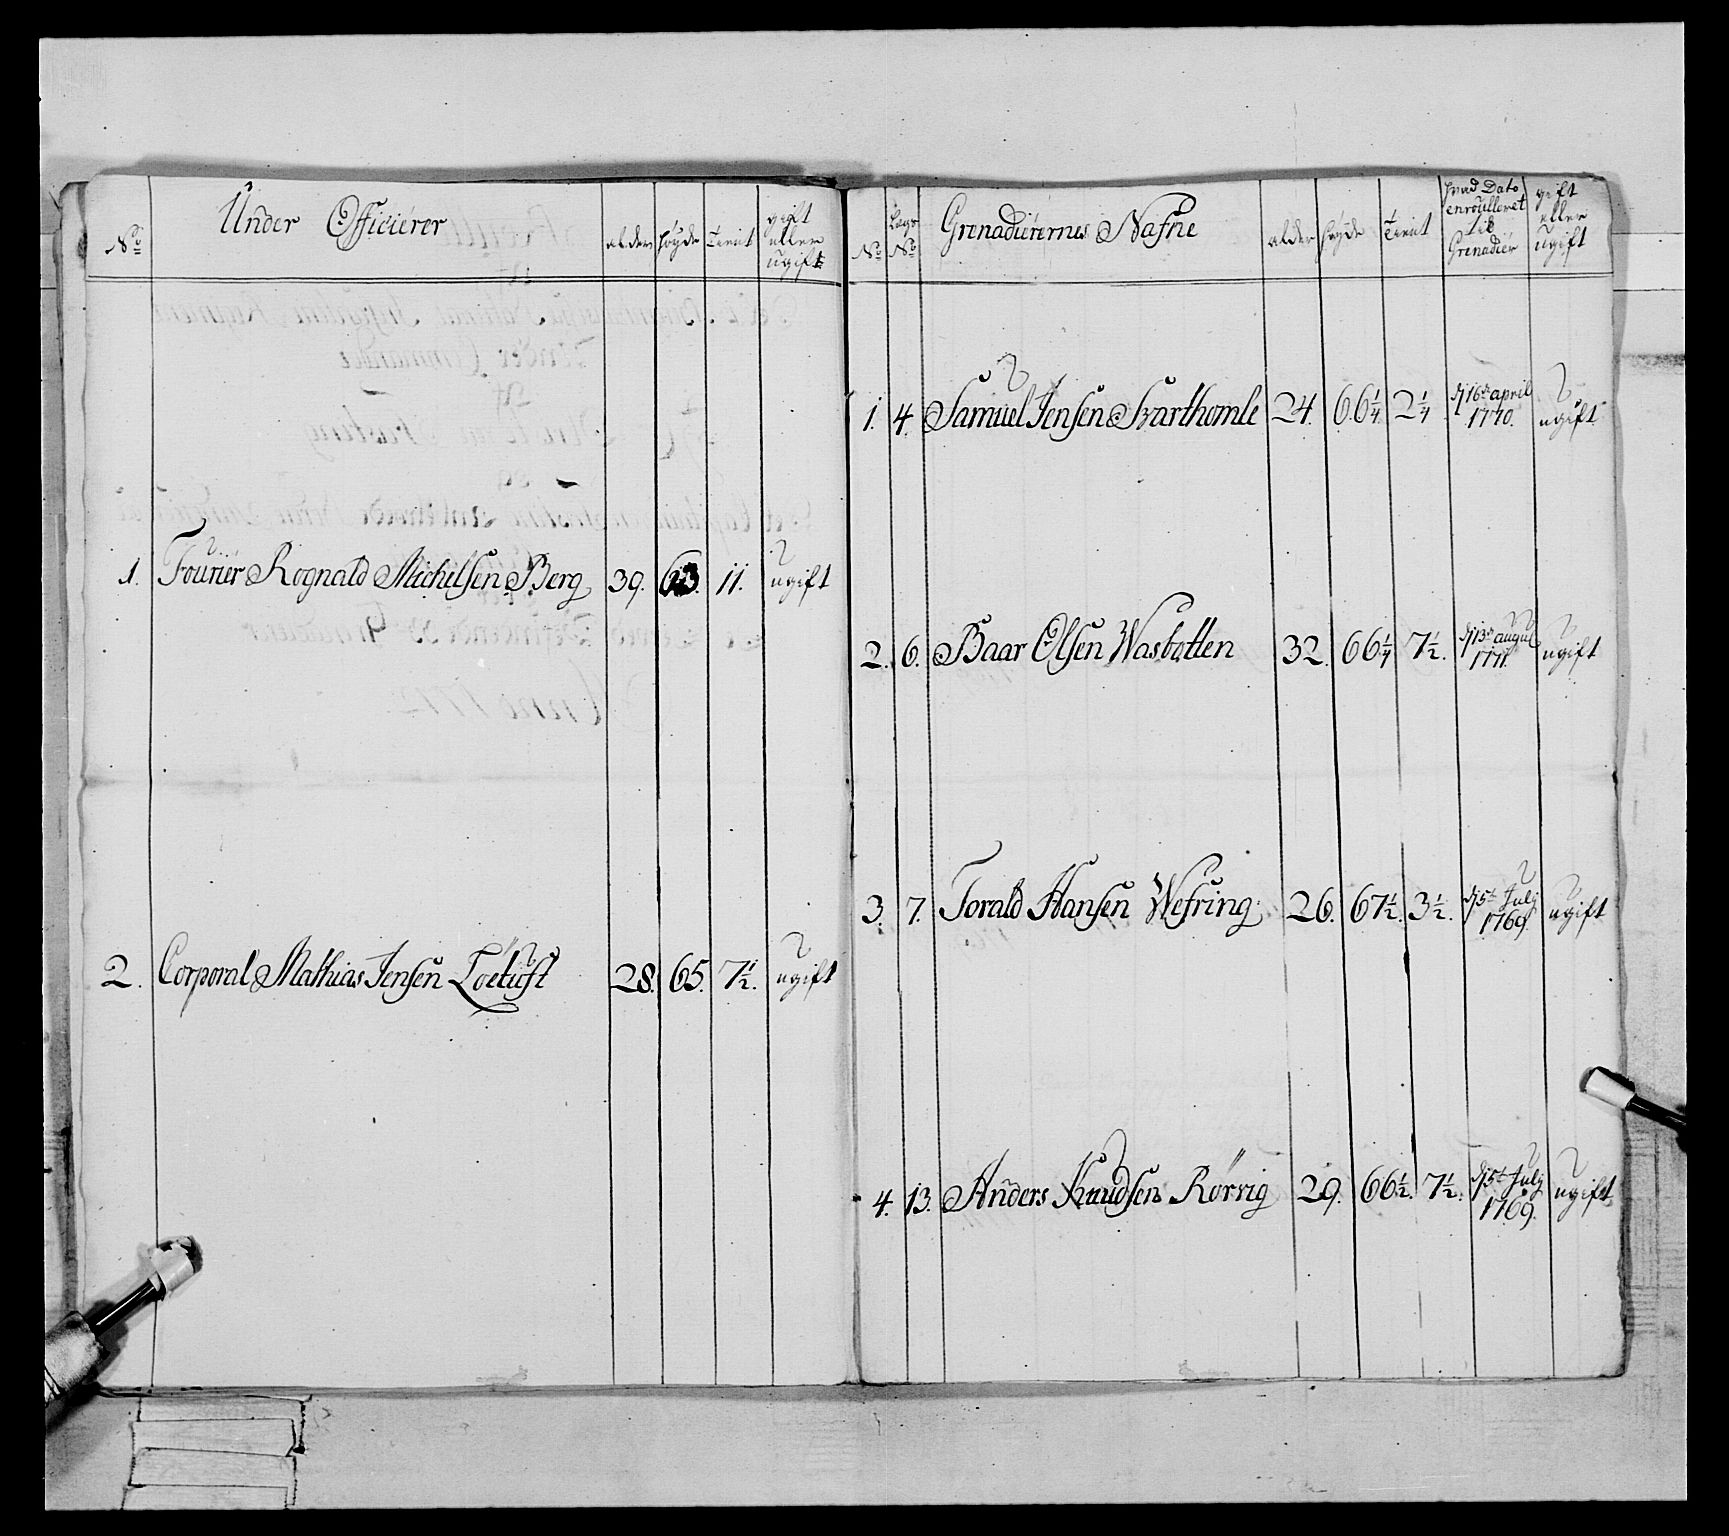 Under Officierer
No
alder
høyde
Tienist
gift
eller
ugift
1. Fourier Rognald Michelsen Berg 39. 63. 11. ugift
2. Corporal Mathias Jensen 28. 65. 7½. ugift
No
Lægs
No
Grenadiérernes Nafne
alder
høyde
Tienist
hvad Dato
enroulleret
til
Grenadier
gift
eller
ugift
1. 4. Samuel Jensen Svarthomle 24. 66¼ 2¼ d 16de april
1770. ugift
2. 6. Baar Olsen Wasbotten 32. 66¼ 7½. d 13de august
1771. ugift
3. 7. Torald Hansen Wefring 26. 67½. 3½. d 5te July
1769. ugift
4. 13. Anders Knudsen Rørvig 29. 66½. 7½. d 5te July
1769. ugift